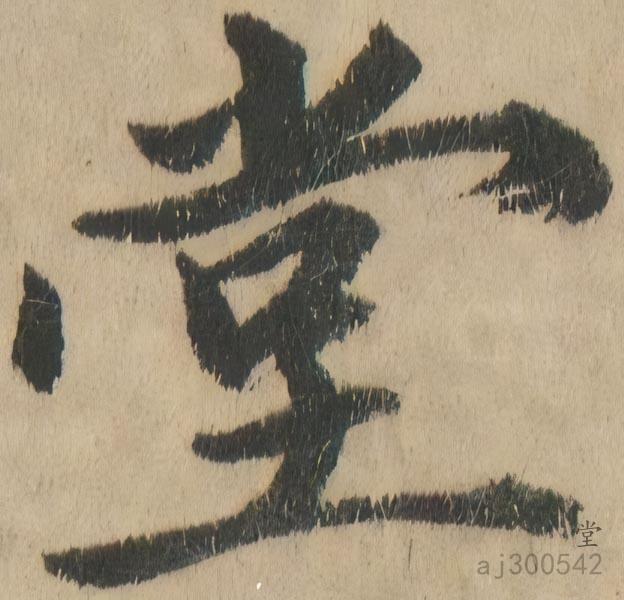 堂
堂
aj300542